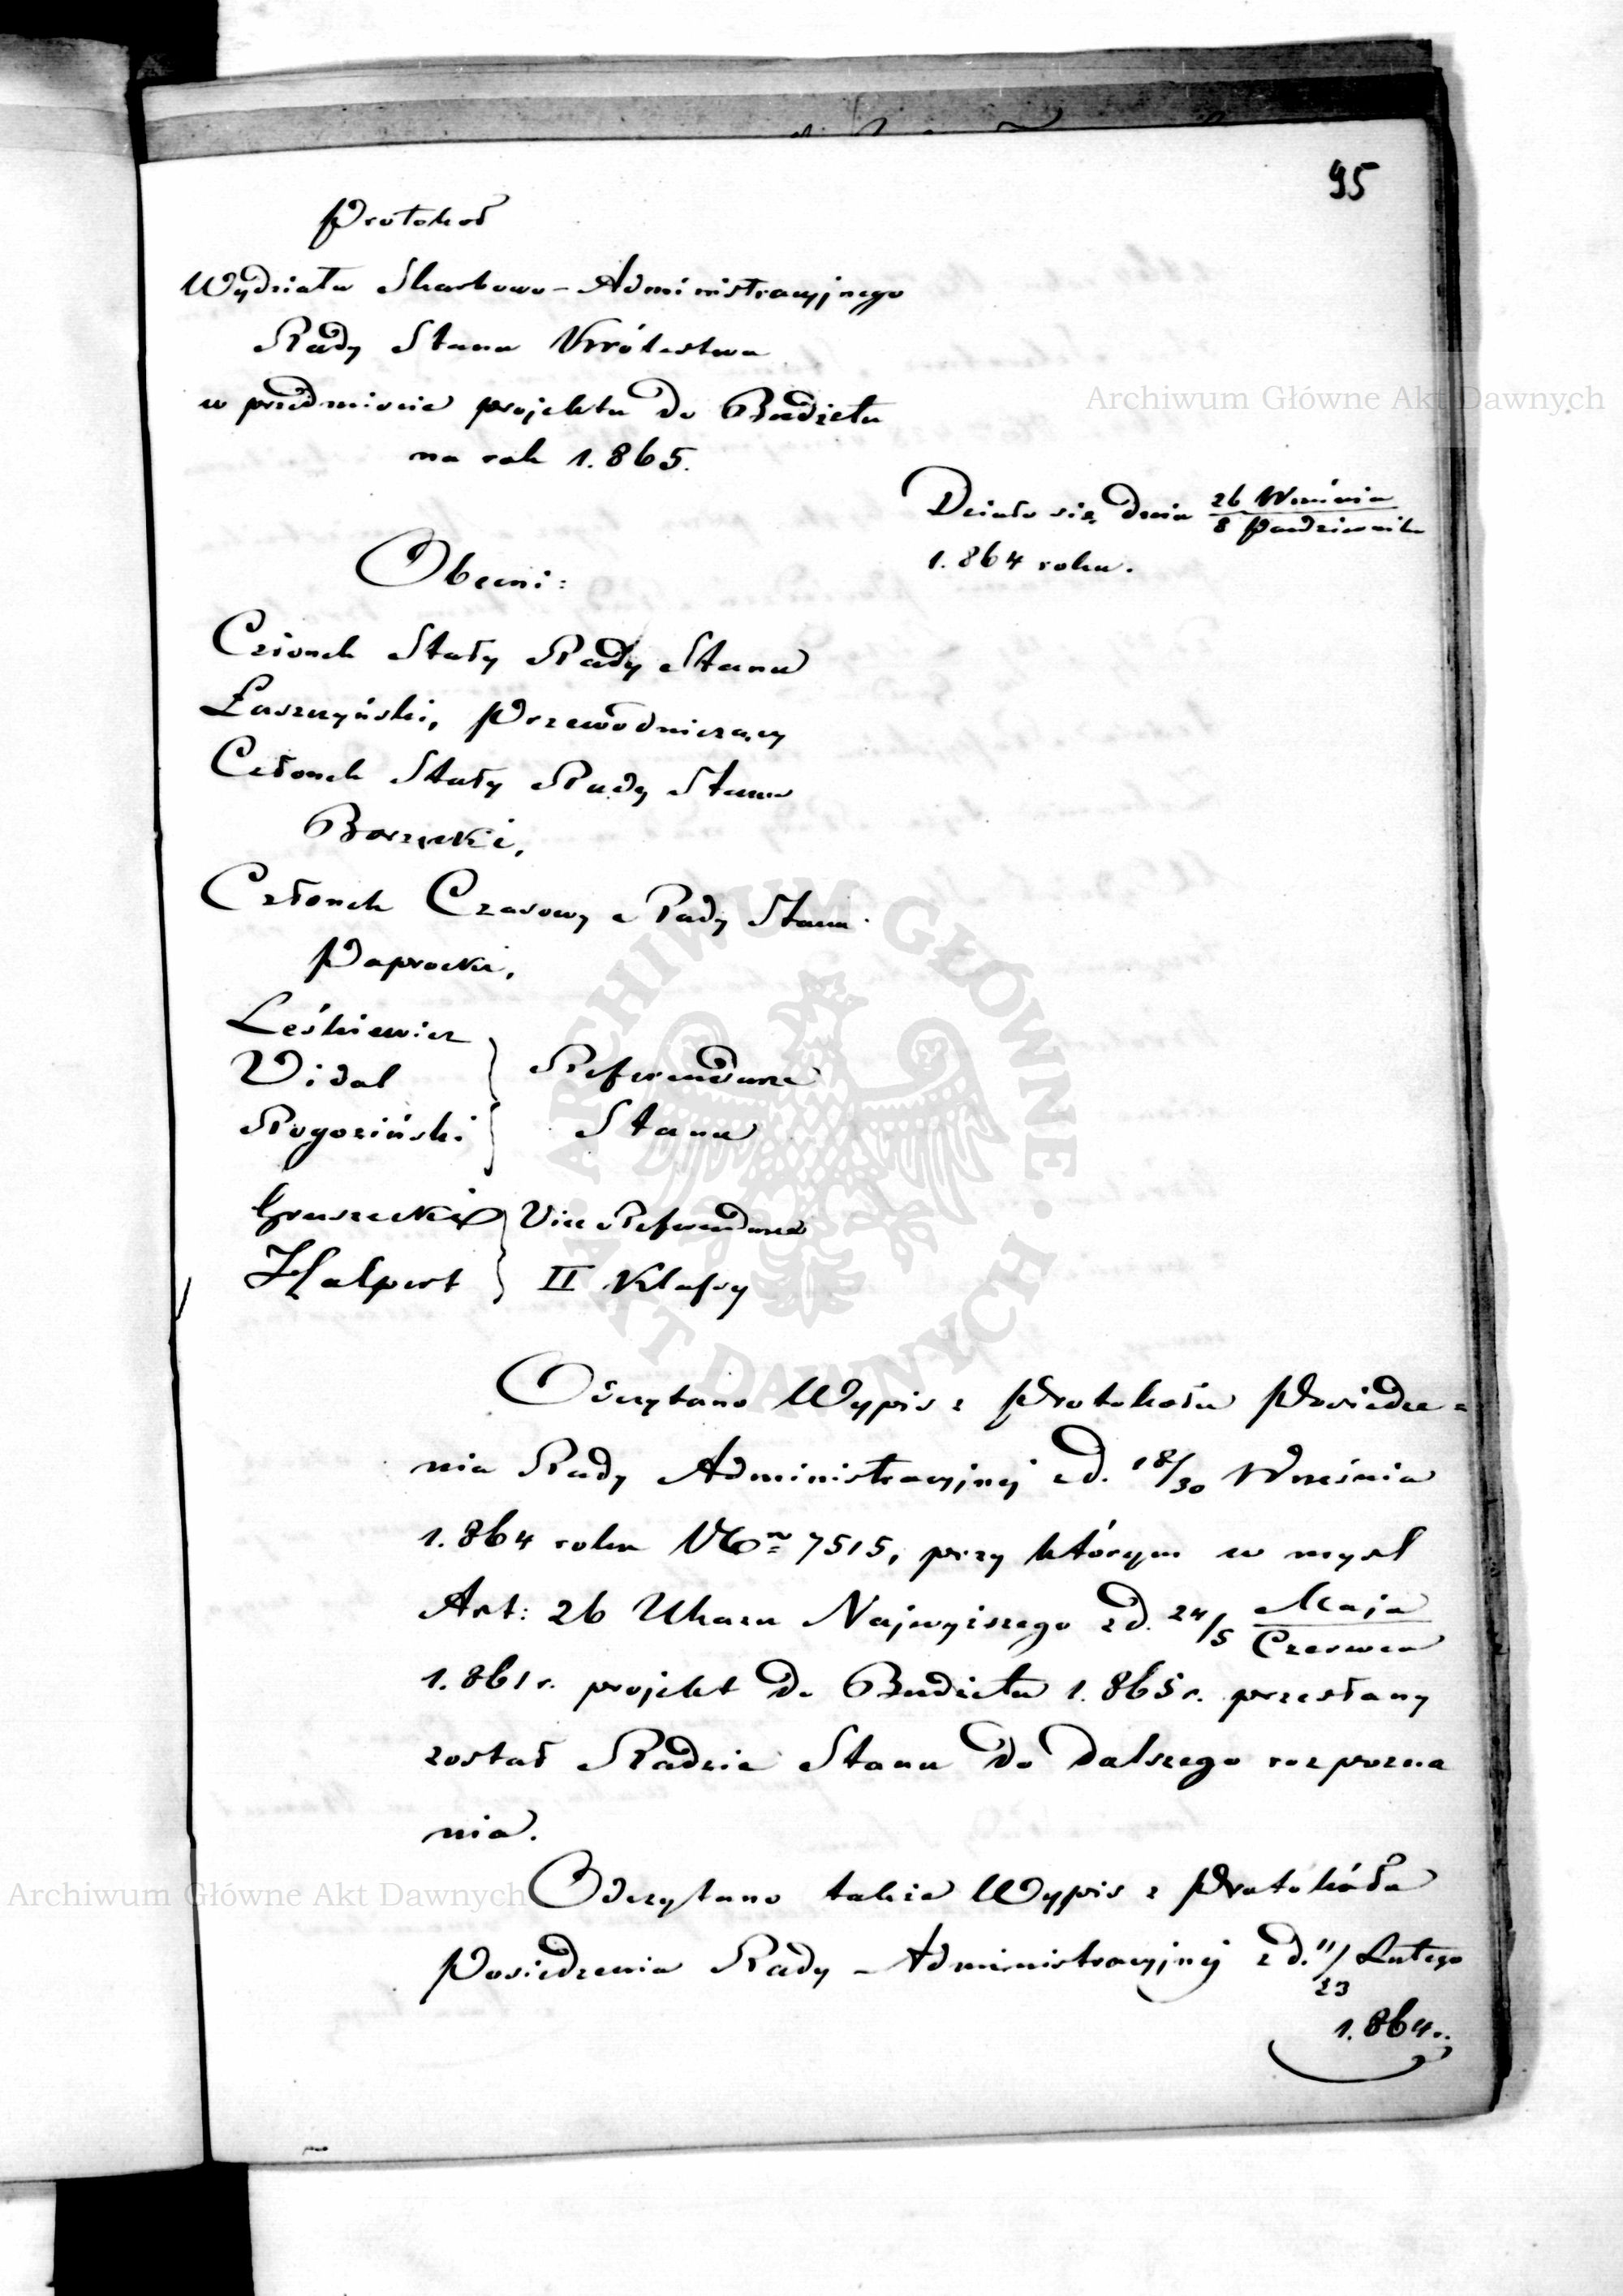 95
Protokoł
Wydziału Skarbowo-Administracyjnego
Rady Stanu Królestwa
w przedmiocie projektu do Budżetu
na rok 1.865.
Działo się dnia 26 Września / 8 Października
1.864 roku.
Obecni:
Członek Stały Rady Stanu
Łaszczyński, Przewodniczący
Członek Stały Rady Stanu
Borzęcki,
Członek Czasowy Rady Stanu
Paprocki,
Leśkiewicz
Vidal } Referendarze
Rogoziński } Stanu
Gruszecki } Vice Referendarze
Halpert } II Klassy
Odczytano Wypis z Protokołu Posiedze=
nia Rady Administracyjnej z d. 18/30 Września
1.864 roku No 7515, przy którym w myśl
Art: 26 Ukazu Najwyższego z d. 24/5 Maja / Czerwca
1.861 r. projekt do Budżetu 1.865 r. przesłany
został Radzie Stanu do dalszego rozpozna
nia.
Odczytano także Wypis z Protokółu
Posiedzenia Rady Administracyjnej z d. 11/23 Lutego
1.864 r.
Archiwum Główne Akt Dawnych
ARCHIWUM GŁÓWNE AKT DAWNYCH
Archiwum Główne Akt Dawnych